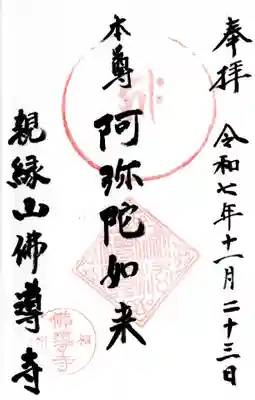 奉拝 令和七年十一月二十三日
本尊 阿弥陀如来
親縁山佛導寺
佛導寺